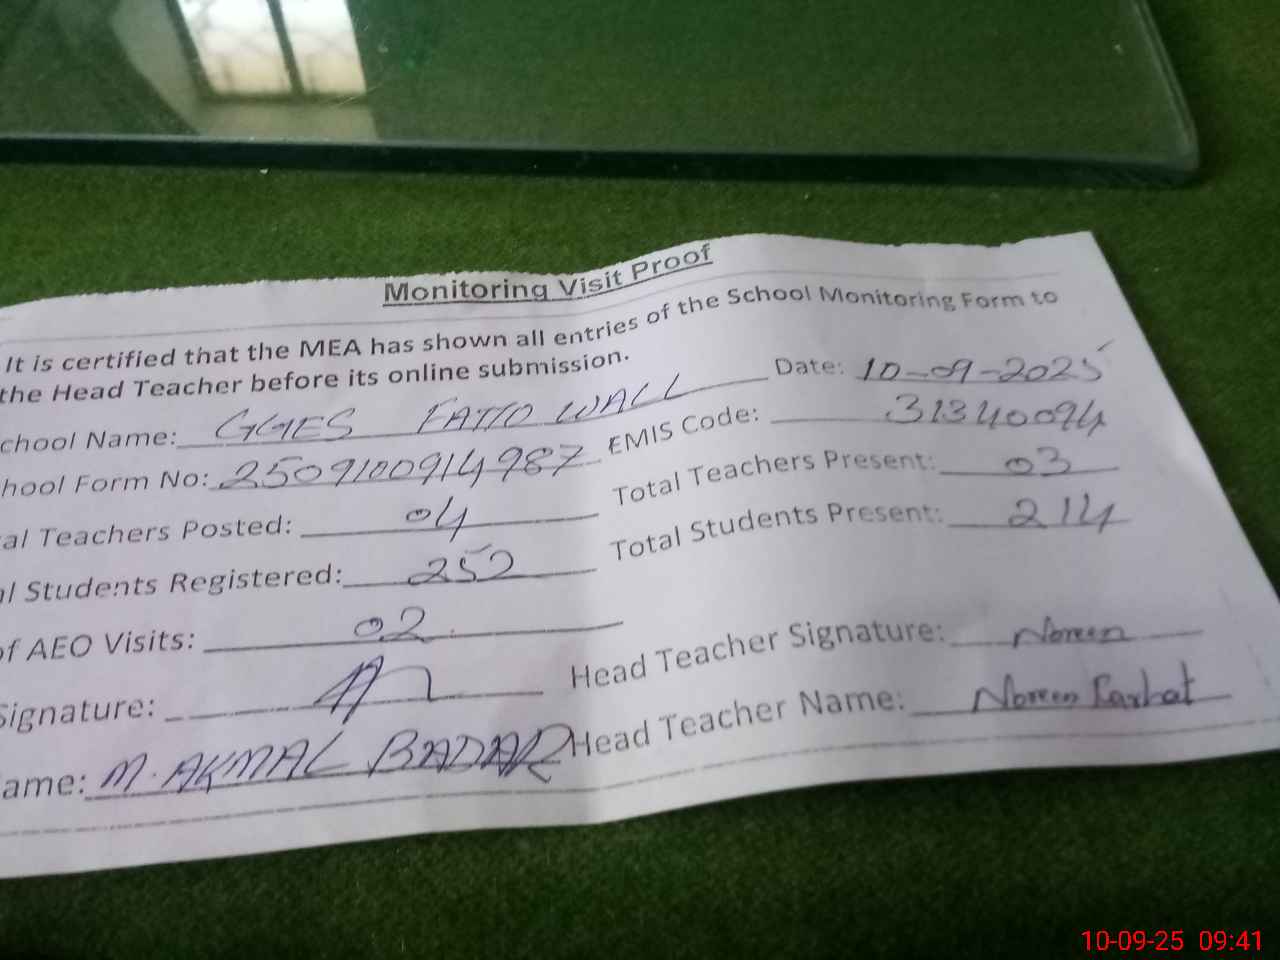 Monitoring Visit Proof
It is certified that the MEA has shown all entries of the School Monitoring Form to
the Head Teacher before its online submission.
Date: 10-09-2025
chool Name: GGES FATTO WALL
EMIS Code: 31340094
hool Form No: 2509100914987
Total Teachers Present: 03
al Teachers Posted: 04
Total Students Present: 214
al Students Registered: 252
of AEO Visits: 02
Head Teacher Signature: Noreen
Signature:
Head Teacher Name: Noreen Farhat
ame: M. AKMAL BADAR
10-09-25 09:41